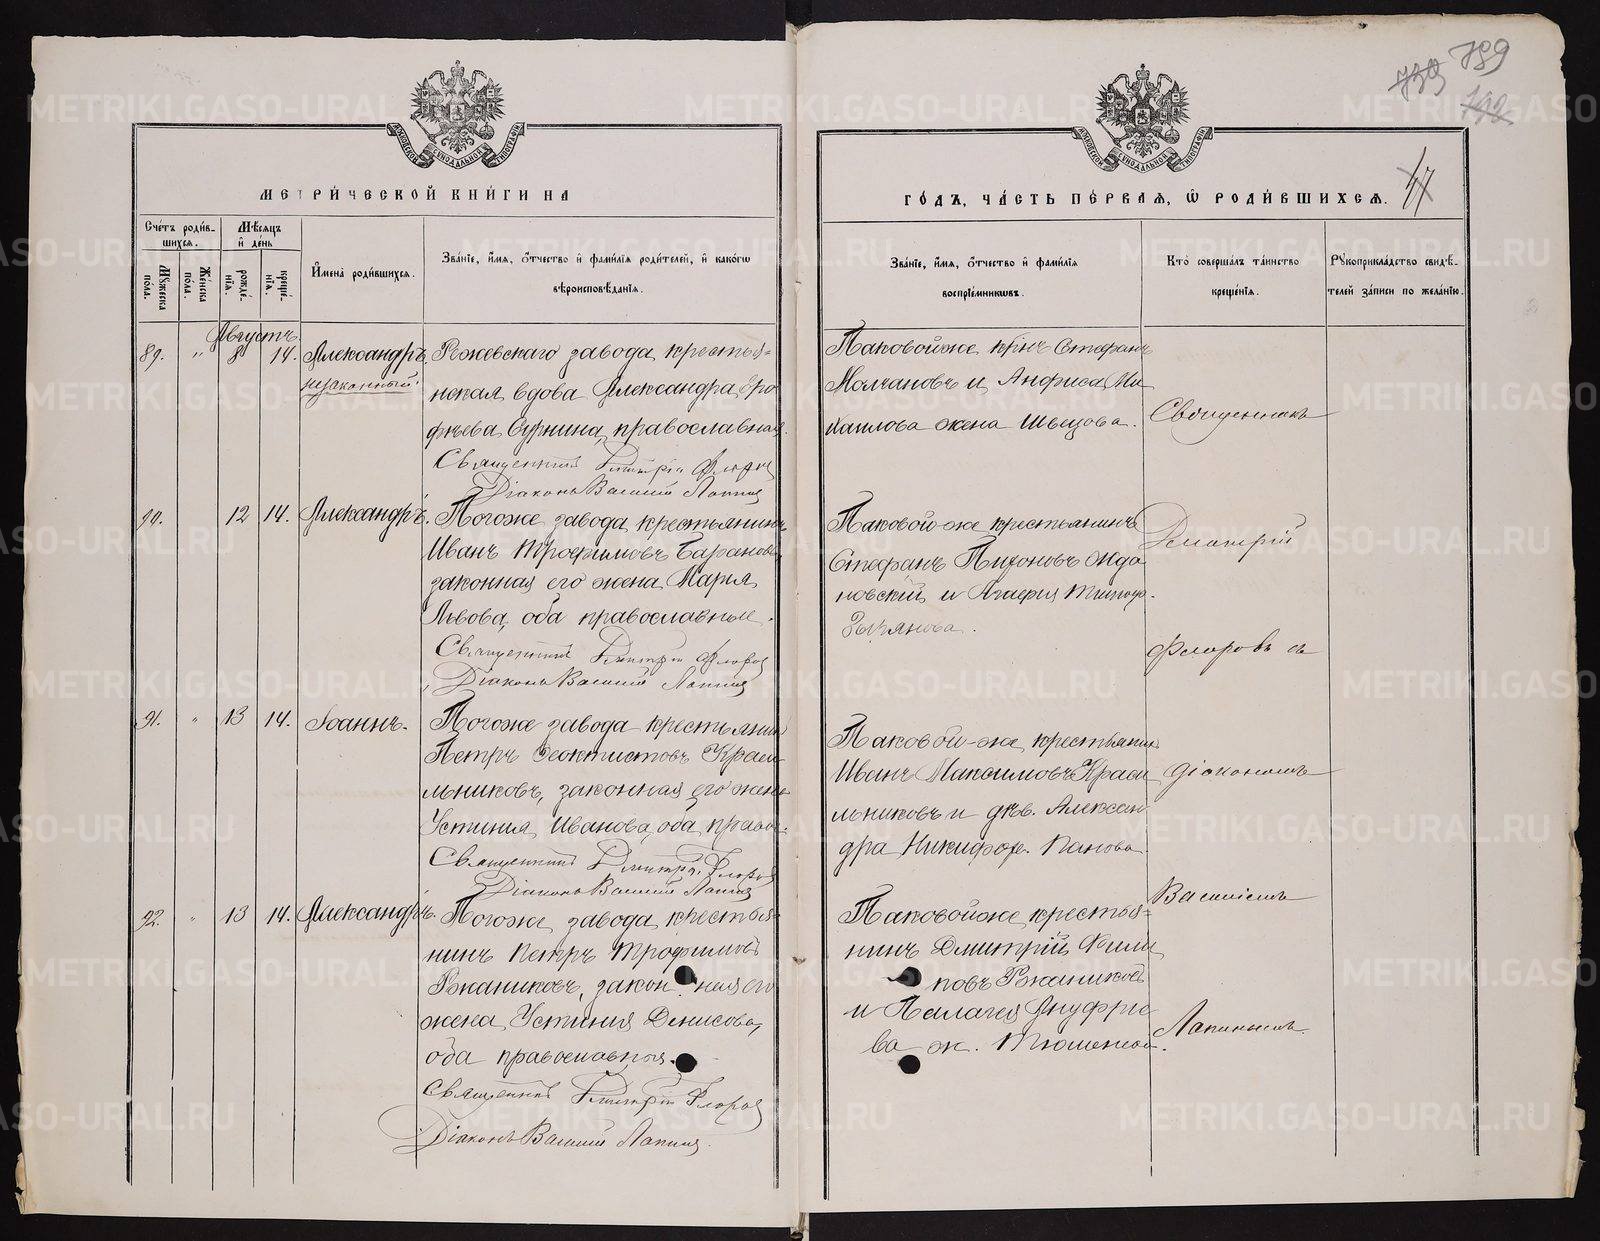 789
739
742
47
МЕТРИ́ЧЕСКОЙ КНИ́ГИ НА
ГО́ДЪ, ЧА́СТЬ ПЕ́РВАЯ, Ѡ РОДИ́ВШИХСЯ.
МОСКОВСКОЙ СѴНОДАЛЬНОЙ ТИПОГРАФІИ
МОСКОВСКОЙ СѴНОДАЛЬНОЙ ТИПОГРАФІИ
Сче́тъ роди́в-
шихся.
Мѣ́сяцъ
и҆ де́нь
Му́жеска по́ла.
Же́нска по́ла.
рожде́-нїя.
креще́-нїя.
И҆мена̀ роди́вшихся.
Зва́нїе, и҆́мя, ѻ҆́тчество и҆ фами́лїя роди́телей, и҆ како́гѡ
вѣроисповѣ́данїя.
Зва́нїе, и҆́мя, ѻ҆́тчество и҆ фами́лїя
воспрїе́мникѡвъ.
Кто̀ соверша́лъ та́инство
креще́нїя.
Рꙋкоприкла́дство свидѣ́-
телей за́писи по жела́нїю.
Августъ
89. " 8 14. Александръ
незаконный.
Режевскаго завода, крестья=
нская вдова Александра Еро
фѣева Сурнина, православная.
Священникъ Димитрій Флоровъ
Діаконъ Василій Лапинъ
Таковойже крнъ Стефанъ
Молчановъ и Анфиса Ми
хаилова жена Швецова.
Священникъ
90. 12 14. Александръ.
Тогоже завода, крестьянинъ
Иванъ Трофимовъ Барановъ
законная его жена Марія
Львова, оба православные.
Священникъ Димитрій Флоровъ
Діаконъ Василій Лапинъ
Таковой-же крестьянинъ
Стефанъ Тихоновъ Ждановский
и Агафия Тимоф.
Зырянова.
Димитрій
Флоровъ съ
91. " 13 14. Іоаннъ.
Тогоже завода крестьянин
Петръ Феоктистовъ Краси
льниковъ, законная его жена
Устиния Иванова, оба правос.
Священникъ Димитрій Флоровъ
Діаконъ Василій Лапинъ
Таковой-же крестьянин
Иванъ Максимовъ Краси
льниковъ и дѣв. Алексан
дра Никифор. Панова
діакономъ
92. " 13 14. Александръ.
Тогоже завода, крестья=
нинъ Петръ Трофимовъ
Ржаниковъ, законная его
жена Устиния Денисова,
оба православныя.
Священникъ Димитрій Флоровъ
Діаконъ Василій Лапинъ.
Таковойже крестья=
нинъ Дмитрій Фили
повъ Ржаниковъ
и Палагея Ануфрие
ва ж.
Василіемъ
Лапинымъ.
METRIKI.GASO-URAL.RU